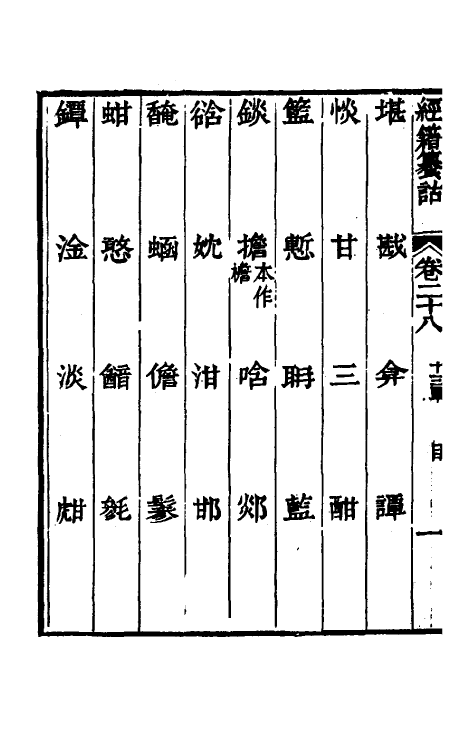 經籍籑詁 卷二十八 十三覃 目 一
堪 戡 弇 譚
惔 甘 三 酣
籃 慙 聃 藍
錟 擔本作檐 唅 郯
谽 妉 泔 邯
醃 蛔 儋 鬖
蚶 憨 㲯
鐔 淦 淡 甝